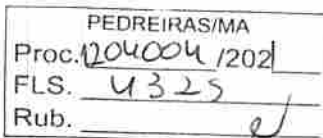 PEDREIRAS/MA
Proc.1204004/2021
FLS. 4325
Rub.